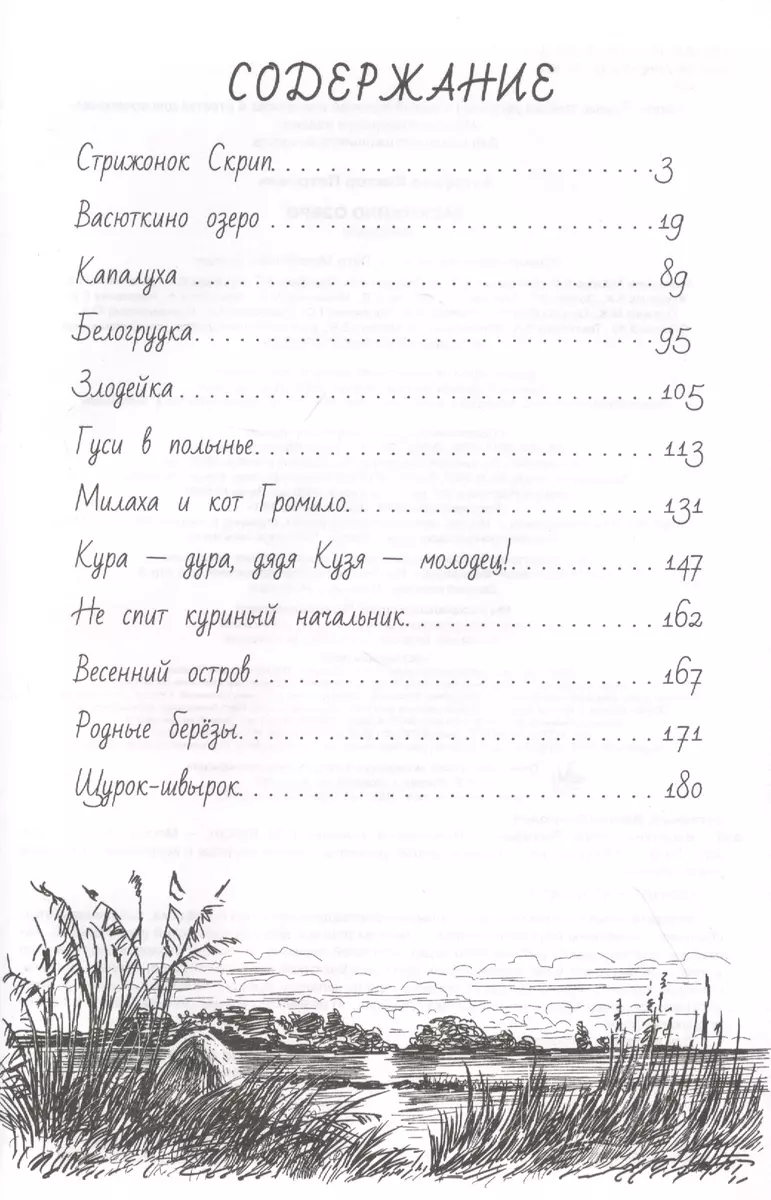 СОДЕРЖАНИЕ
Стрижонок Скрип. . . . . . . . . . . . . . . . . . . . . . 3
Васюткино озеро . . . . . . . . . . . . . . . . . . . . . . 19
Капалуха . . . . . . . . . . . . . . . . . . . . . . . . . . . 89
Белогрудка. . . . . . . . . . . . . . . . . . . . . . . . . . 95
Злодейка . . . . . . . . . . . . . . . . . . . . . . . . . . . 105
Гуси в полынье. . . . . . . . . . . . . . . . . . . . . . . 113
Милаха и кот Громило. . . . . . . . . . . . . . . . . . 131
Кура — дура, дядя Кузя — молодец!. . . . . . . . . 147
Не спит куриный начальник. . . . . . . . . . . . . . 162
Весенний остров. . . . . . . . . . . . . . . . . . . . . . 167
Родные берёзы. . . . . . . . . . . . . . . . . . . . . . . 171
Щурок-швырок. . . . . . . . . . . . . . . . . . . . . . . 180